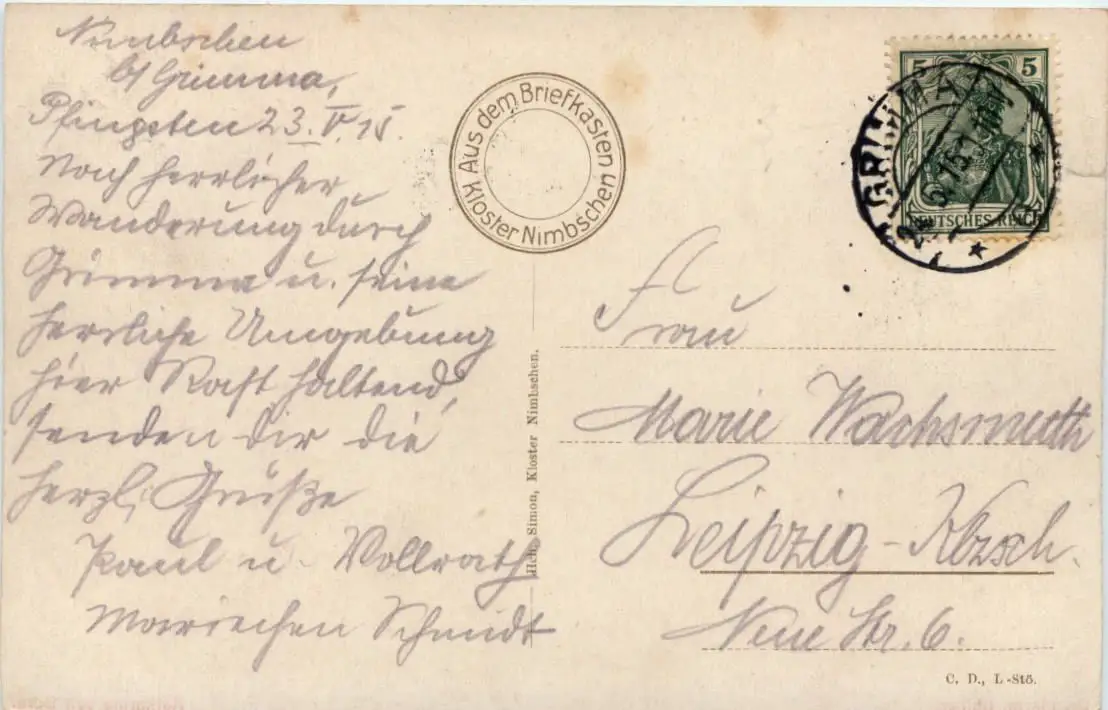 Nimbschen
b/ Grimma,
Pfingsten 23. V. 15.
Nach herrlicher
Wanderung durch
Grimma u. seine
herrliche Umgebung
hier Rast haltend,
senden dir die
herzl. Grüße
Paul u. Vollrath
Mariechen Schmidt
Aus dem Briefkasten
Kloster Nimbschen
Simon, Kloster Nimbschen.
5 5
DEUTSCHES REICH
GRIMMA
Frau
Marie Wachsmuth
Leipzig-Klzsch.
Neue Str. 6.
C. D., L.-Stö.